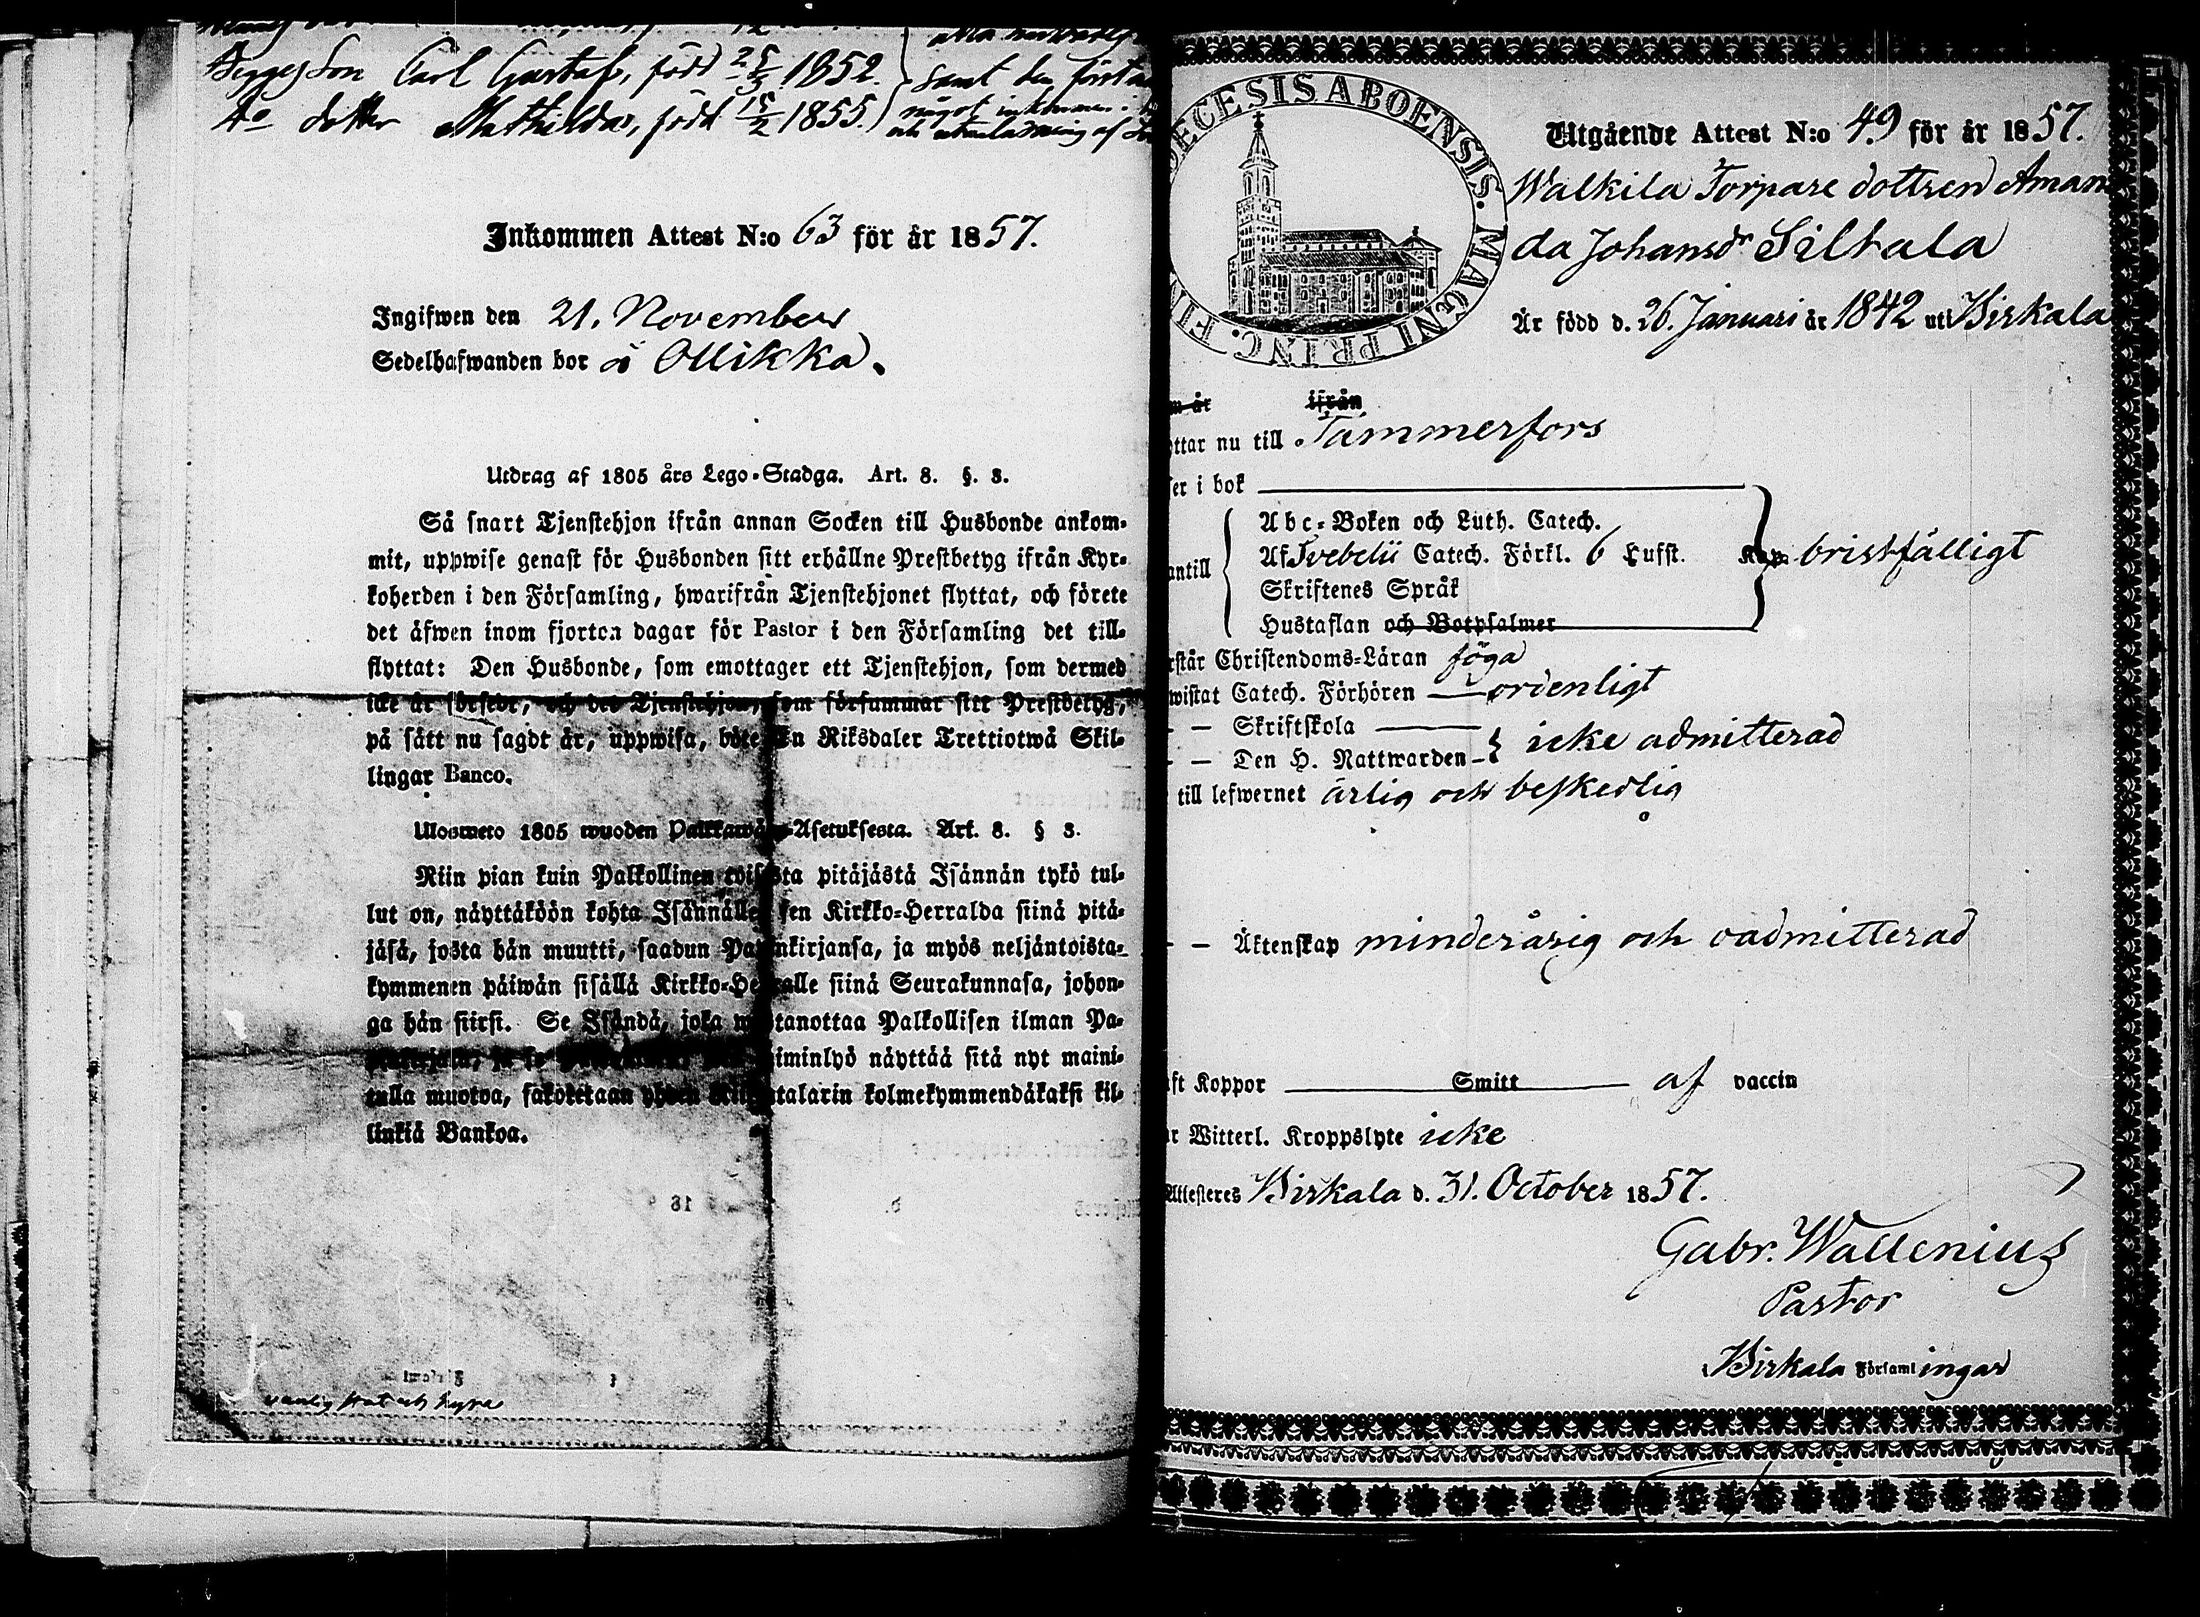 Begges Son Carl Gustaf, född 25/3 1852.
do dotter Mathilda, född 15/2 1855.
samt den först
något inkommen.
och af
Inkommen Attest N:o 63 för år 1857.
Ingifwen den 21. November
Sedelhafwanden bor å Ollikka.
Utdrag af 1805 års Lego-Stadga. Art. 8. §. 3.
Så snart Tjenstehjon ifrån annan Socken till Husbonde ankom-
mit, uppwise genast för Husbonden sitt erhållne Prestbetyg ifrån Kyr-
koherden i den Församling, hwarifrån Tjenstehjonet flyttat, och förete
det äfwen inom fjorton dagar för Pastor i den Församling det till-
flyttat: Den Husbonde, som emottager ett Tjenstehjon, som dermed
icke är försedt, och det Tjenstehjon, som försummar sitt Prestbetyg,
på sätt nu sagdt är, uppwisa, böte En Riksdaler Trettiotwå Skil-
lingar Banco.
Ulosweto 1805 wuoden Palkkawäen-Asetuksesta. Art. 8. § 3.
Niin pian kuin Palkollinen toisesta pitäjästä Isännän tykö tul-
lut on, näyttäköön kohta Isännälle sen Kirkko-Herralda siinä pitä-
jäsä, josta hän muutti, saadun Papinkirjansa, ja myös neljäntoista-
kymmenen päiwän sisällä Kirkko-Herralle siinä Seurakunnasa, johon-
ga hän siirsi. Se Isändä, joka wastanottaa Palkollisen ilman Pa-
pinkirjata, ja se laiminlyö näyttää sitä nyt maini-
tulla muotoa, sakoitetaan yhden Riikintalarin kolmekymmendäkaksi kil-
linkiä Bankoa.
18
Församl
DECESIS ABOENSIS. MAGNI PRINC. FIN
Utgående Attest N:o 49 för år 1857.
Walkila Torpare dottren Aman
da Johansdr Siltala
Är född d. 26. Januari år 1842 uti Birkala
m år ifrån
ottar nu till Tammerfors
ser i bok
Abc-Boken och Luth. Catech.
Af Svebelii Catech. Förkl. 6 Hufst. Kap. bristfälligt
antill
Skriftenes Språk
Hustaflan och Botpsalmer
rstår Christendoms-Läran föga
wistat Catech. Förhören ordenligt
— Skriftskola
— Den H. Nattwarden icke admitterad
till lefwernet ärlig och beskedlig
— Äktenskap minderårig och oadmitterad
aft Koppor Smitt af vaccin
ar Witterl. Kroppslyte icke
Attesteres Birkala d. 31. October 1857.
Gabr. Wallenius
Pastor
Birkala Församlingar
vanlig och hyra